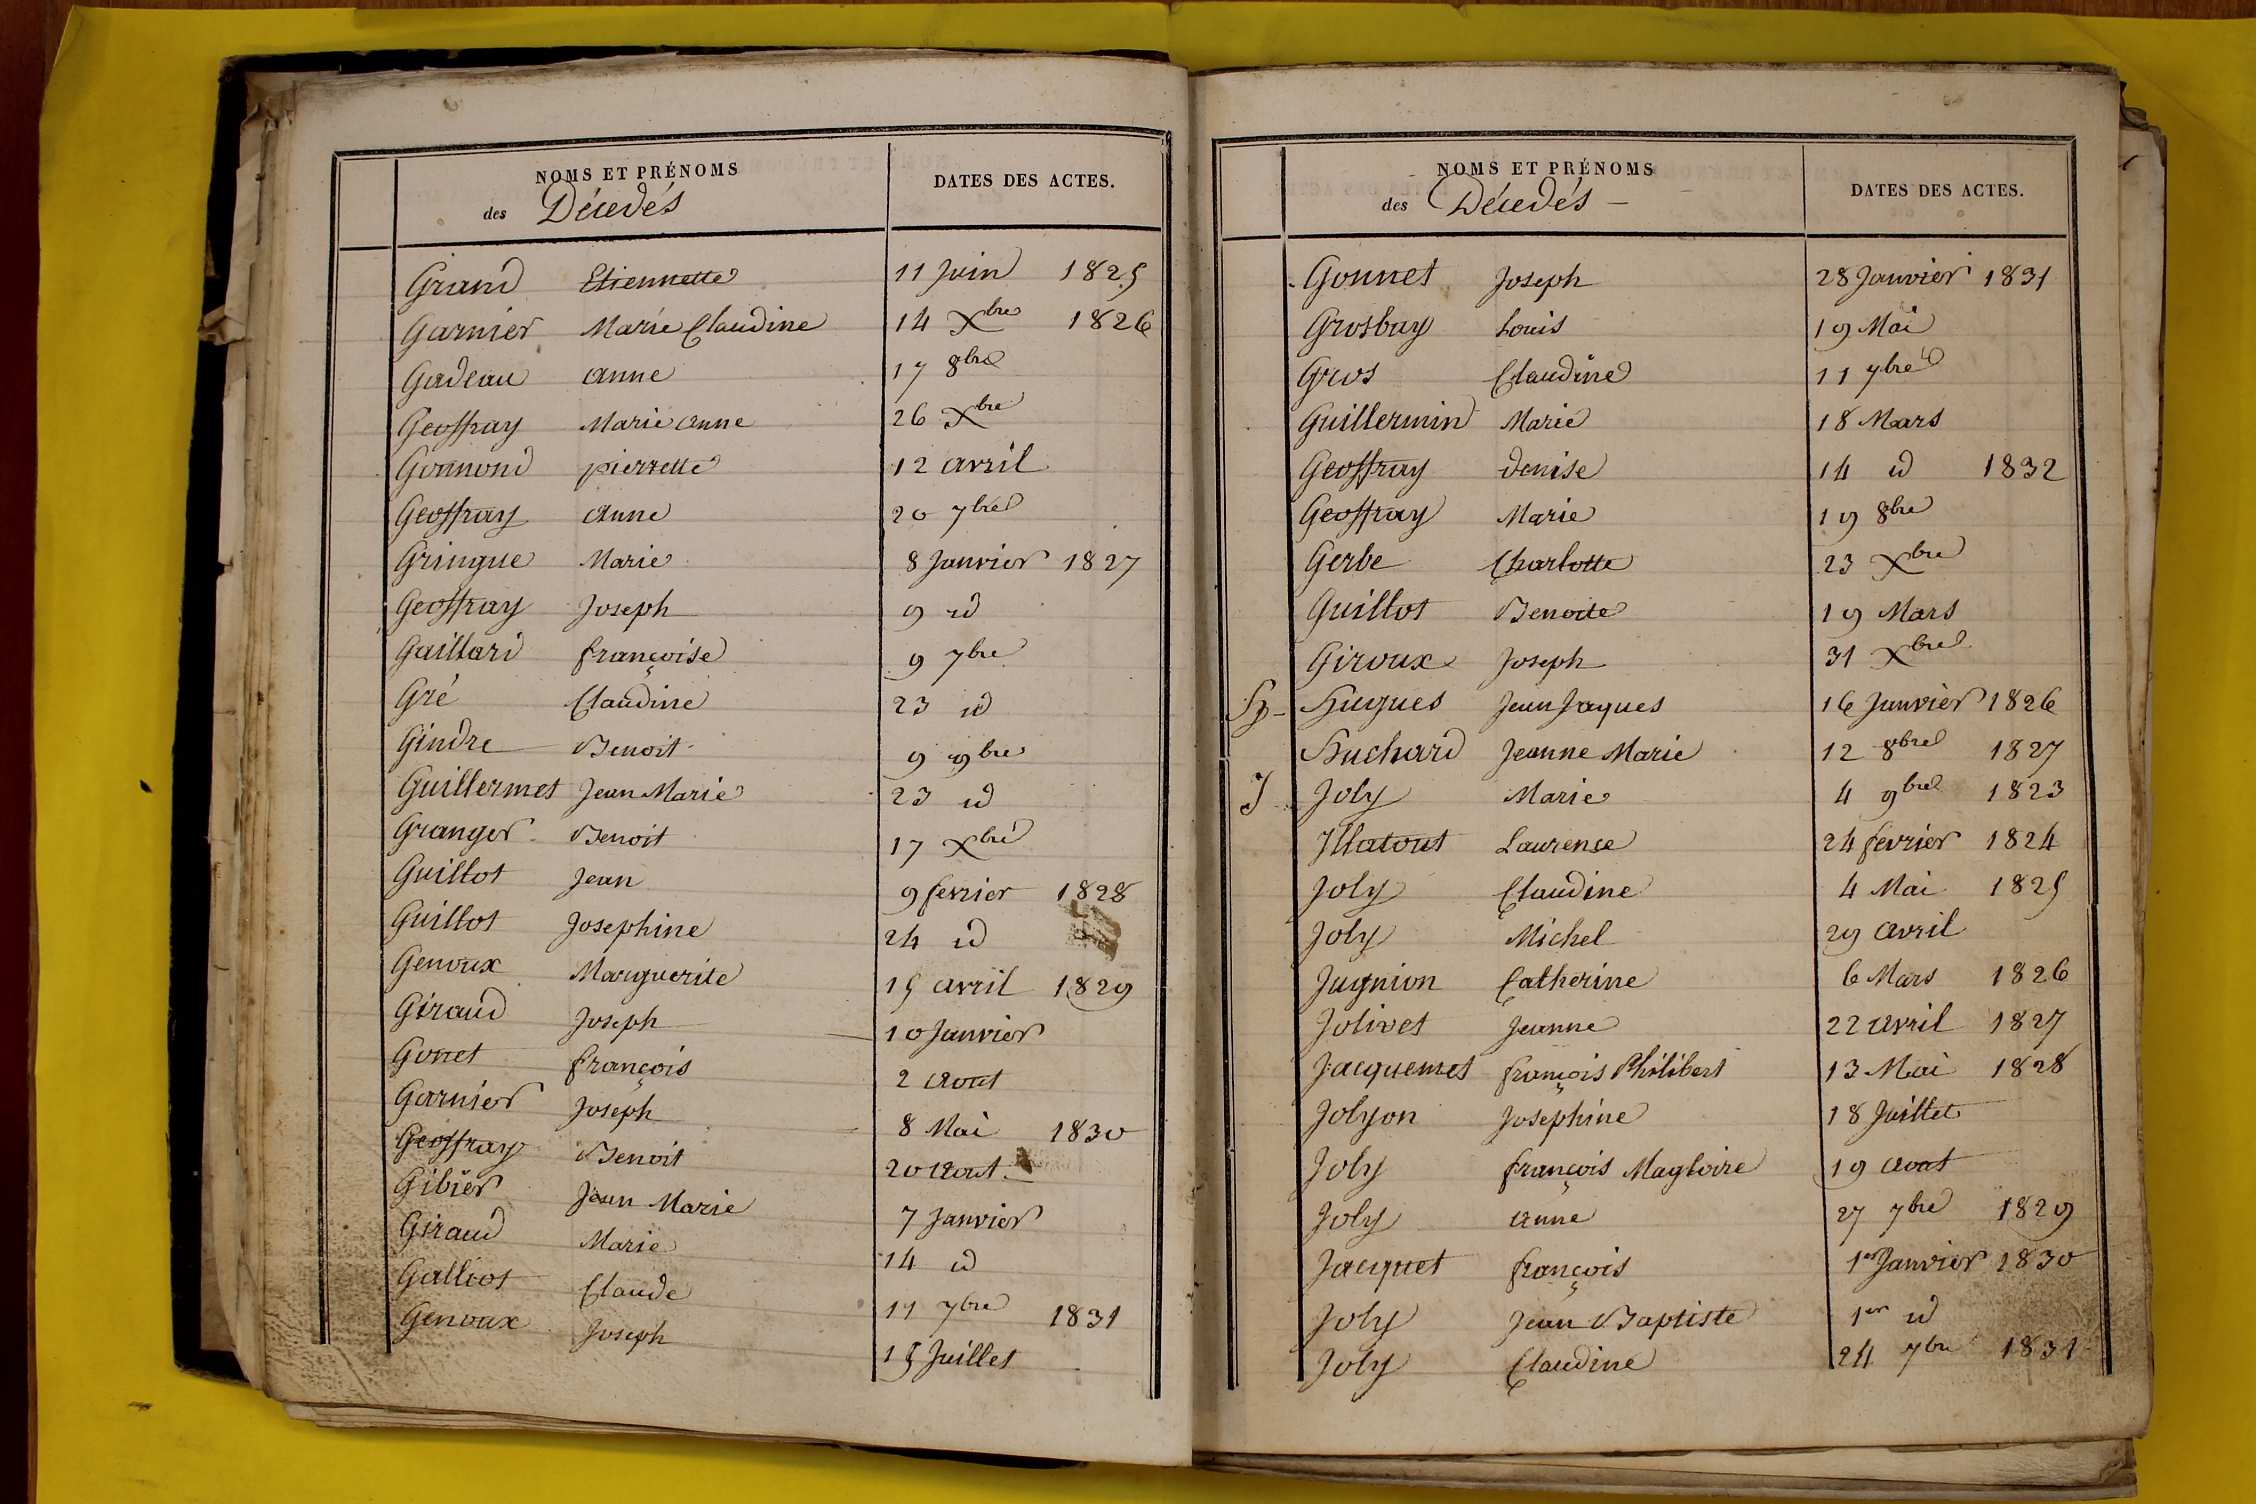 NOMS ET PRÉNOMS
des Décedés
DATES DES ACTES.
Girand Etiennette 11 Juin 1825
Garnier Marie Claudine 14 Xbre 1826
Gadeau anne 17 8bre
Geoffray Marie anne 26 Xbre
Gonnond pierrette 12 avril
Geoffray anne 20 7bre
Gringue Marie 8 Janvier 1827
Geoffray Joseph 9 id
Gaillard françoise 9 7bre
Gré Claudine 23 id
Gindre Benoit 9 9bre
Guillermet Jean Marie 23 id
Granger Benoit 17 Xbre
Guillot Jean 9 fevrier 1828
Guillot Josephine 24 id
Genoux Marguerite 15 avril 1829
Giraud Joseph 10 Janvier
Gonet françois 2 aout
Garnier Joseph 8 Mai 1830
Geoffray Benoit 20 aout
Gibier Jean Marie 7 Janvier
Giraud Marie 14 id
Galliot Claude 11 7bre 1831
Genoux Joseph 15 Juillet
NOMS ET PRÉNOMS
des Décedés
DATES DES ACTES.
Gonnet Joseph 28 Janvier 1831
Grosbuy Louis 19 Mai
Gros Claudine 11 7bre
Guillermin Marie 18 Mars
Geoffray denise 14 id 1832
Geoffray Marie 19 8bre
Gerbe Charlotte 23 Xbre
Guillot Benoite 19 Mars
Giroux Joseph 31 Xbre
H - Hugues Jean Jaques 16 Janvier 1826
Huchard Jeanne Marie 12 8bre 1827
J Joly Marie 4 9bre 1823
Jllatout Laurence 24 fevrier 1824
Joly Claudine 4 Mai 1825
Joly Michel 29 avril
Jugnion Catherine 6 Mars 1826
Jolivet Jeanne 22 avril 1827
Jacquemet françois Philibert 13 Mai 1828
Jolyon Josephine 18 Juillet
Joly françois Magloire 19 aout
Joly anne 27 7bre 1829
Jacquet françois 1er Janvier 1830
Joly Jean Baptiste 1er id
Joly Claudine 24 7bre 1831